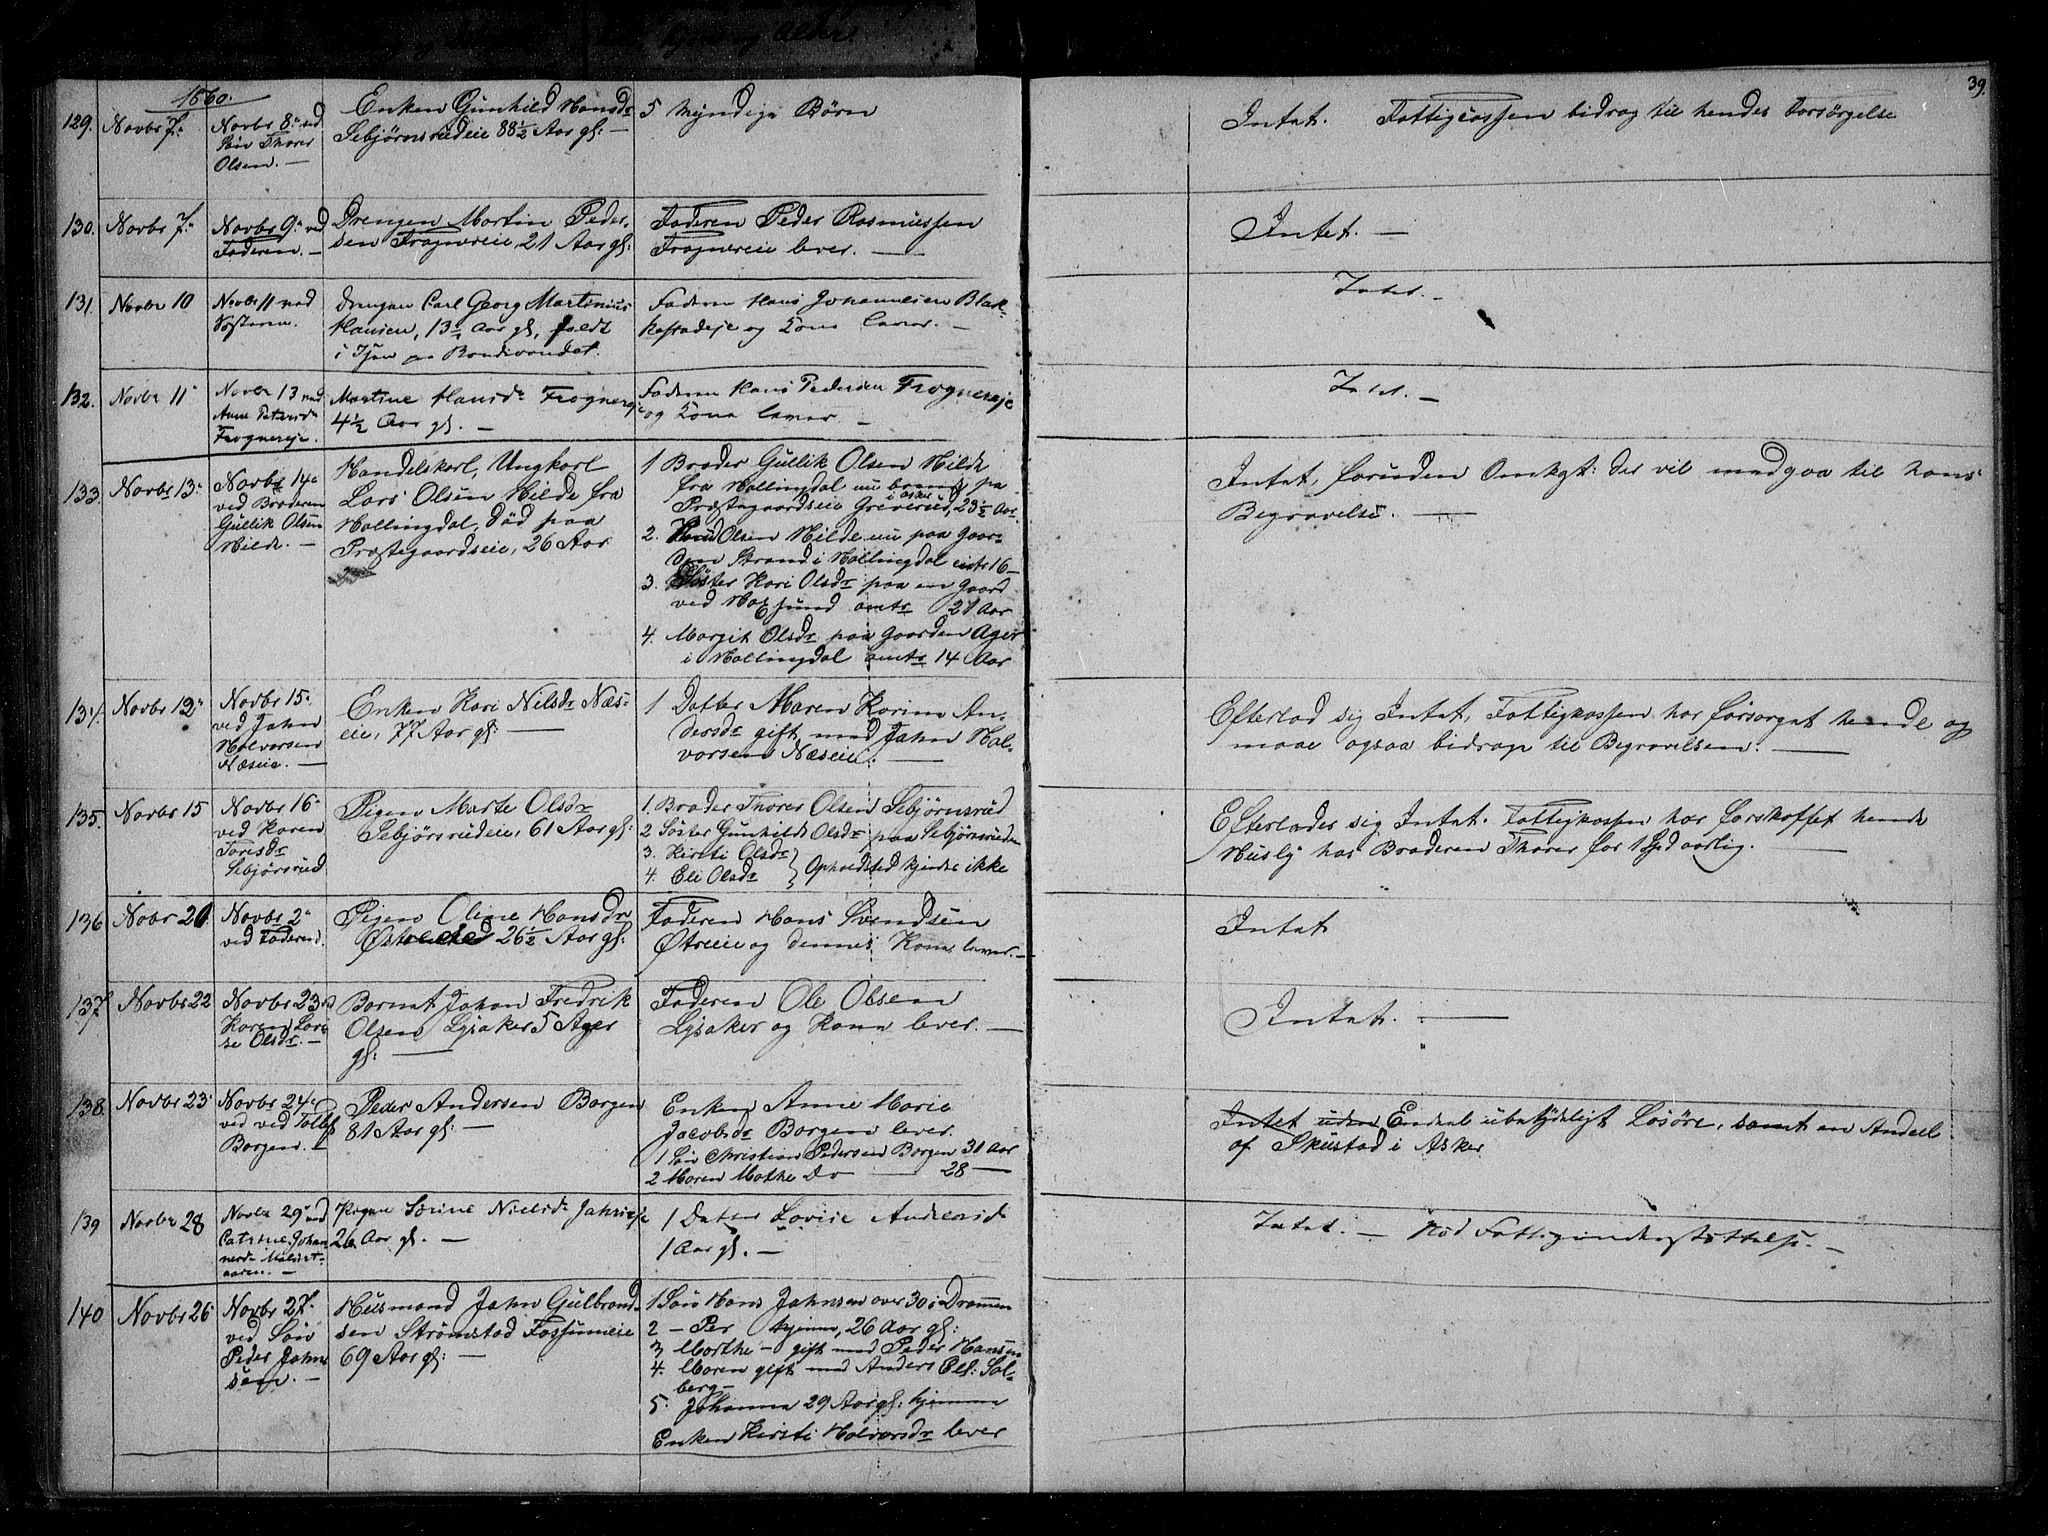 39.
1860.
129. Novbr 7. Novbr 8. ved Søn Thorer Olsen. — Enken Gunhild Hansdr 5 Myndige Børn Intet. Fattigcassen bidrog til hendes Forsørgelse
Sebjørnsrudeie 88½ Aar gl: —
130. Novbr 7. Novbr 9. ved Faderen. — Drengen Martin Peder- Faderen Peder Rasmussen Intet. —
sen Frognereie, 21 Aar gl: Frognereie lever. —
131. Novbr 10 Novbr 11 ved Drengen Carl Georg Martinius Faderen Hans Johannesen Blak- Intet. —
Hansen, 13½ Aar gl, født og Kone lever. —
i
132. Novbr 11 Novbr 13 ved Martine Hansdr Frognereje Faderen Hans Pedersen Frognereje Intet. —
Frognereje. 4½ Aar gl. — og Kone lever —
133 Novbr 13. Novbr 14. Handelskarl, Ungkarl 1 Broder Gullik Olsen Hilde Intet, foruden Omkgt: der vil medgaa til hans
ved Broderen Lars Olsen Hilde fra fra Hallingdal nu paa Begravelse. —
Gullik Olsen Hallingdal, død paa Præstegaardseie Greverud, i Asker 23½ Aar
Hilde. — Præstegaardseie, 26 Aar 2. Knud Olsen Hilde nu paa Gaar-
den Strand i Hallingdal 16 —
3. Søster Kari Olsdr paa en Gaard
ved Hoksund omtr 21 Aar
4. Margit Olsdr paa Gaarden Ager
i Hallingdal omtr 14 Aar
134. Novbr 12. Novbr 15. Enken Kari Nilsdr Næs- 1 Datter Maren Karine An- Efterlod sig Intet, Fattigkassen har forsørget hende og
ved John eie, 77 Aar gl: — dersdr gift med John Hal- maae ogsaa bidrage til Begravelsen. —
Halvorsen vorsen Næseie. —
Næseie. —
135. Novbr 15 Novbr 16. Pigen Marte Olsdr 1. Broder Thorer Olsen Sebjørnsrud Efterlader sig Intet. Fattigkassen har forskaffet hende
ved Karen Sebjørsrudeie, 61 Aar gl: 2 Søster Gunhild Olsdr paa Sebjørnsrudeie Husly hos Broderen Thorer for 1 Spd aarlig. —
Toresdr 3. Kirsti Olsdr
Sebjørsrud 4. Eli Olsdr } Opholdsted kjendes ikke
136 Novbr 20 Novbr 2 Pigen Oline Hansdr Faderen Hans Svendsen Intet
ved Faderen. 26½ Aar gl: Øtreie og dennes Kone lever. —
137. Novbr 22 Novbr 23 ved Barnet Johan Fredrik Faderen Ole Olsen Intet. —
Karen Lovi- Olsen Lysaker 5 Ager Lysaker og Kone lever. —
se Olsdr. — gl: —
138. Novbr 23. Novbr 24. Peder Andersen Borgen Enken Anne Marie Intet uden Endeel ubetydeligt Løsøre, samt en Andeel
ved ved Tollef 81 Aar gl: — Jacobsdr Borgen lever. af Skustad i Asker
Borgen. — 1 Søn Christian Pedersen Borgen 30 Aar
2 Maren Mathe Do — 28 —
139 Novbr 28 Novbr 29 ved Pigen Sørine Nielsdr 1 Datter Lovise Andersdr Intet. — Nød Fattigunderstøttelse. —
Catrine Johan- 26 Aar gl. — 1 Aar gl. —
nesdr
140 Novbr 26 Novbr 27. Husmand John Gulbrand- 1 Søn Hans Johnsen over 30 i Drammen
ved Søn sen Strømstad Fossumeie 2 — Per hjemme, 26 Aar gl:
Peder John- 69 Aar gl: — 3 Marthe — gift med Peder Hansen
sen. — 4. Maren gift med Anders Ell: Sol-
berg —
5. Johanna 29 Aar gl: hjemme
Enken Kirsti Halvorsdr lever